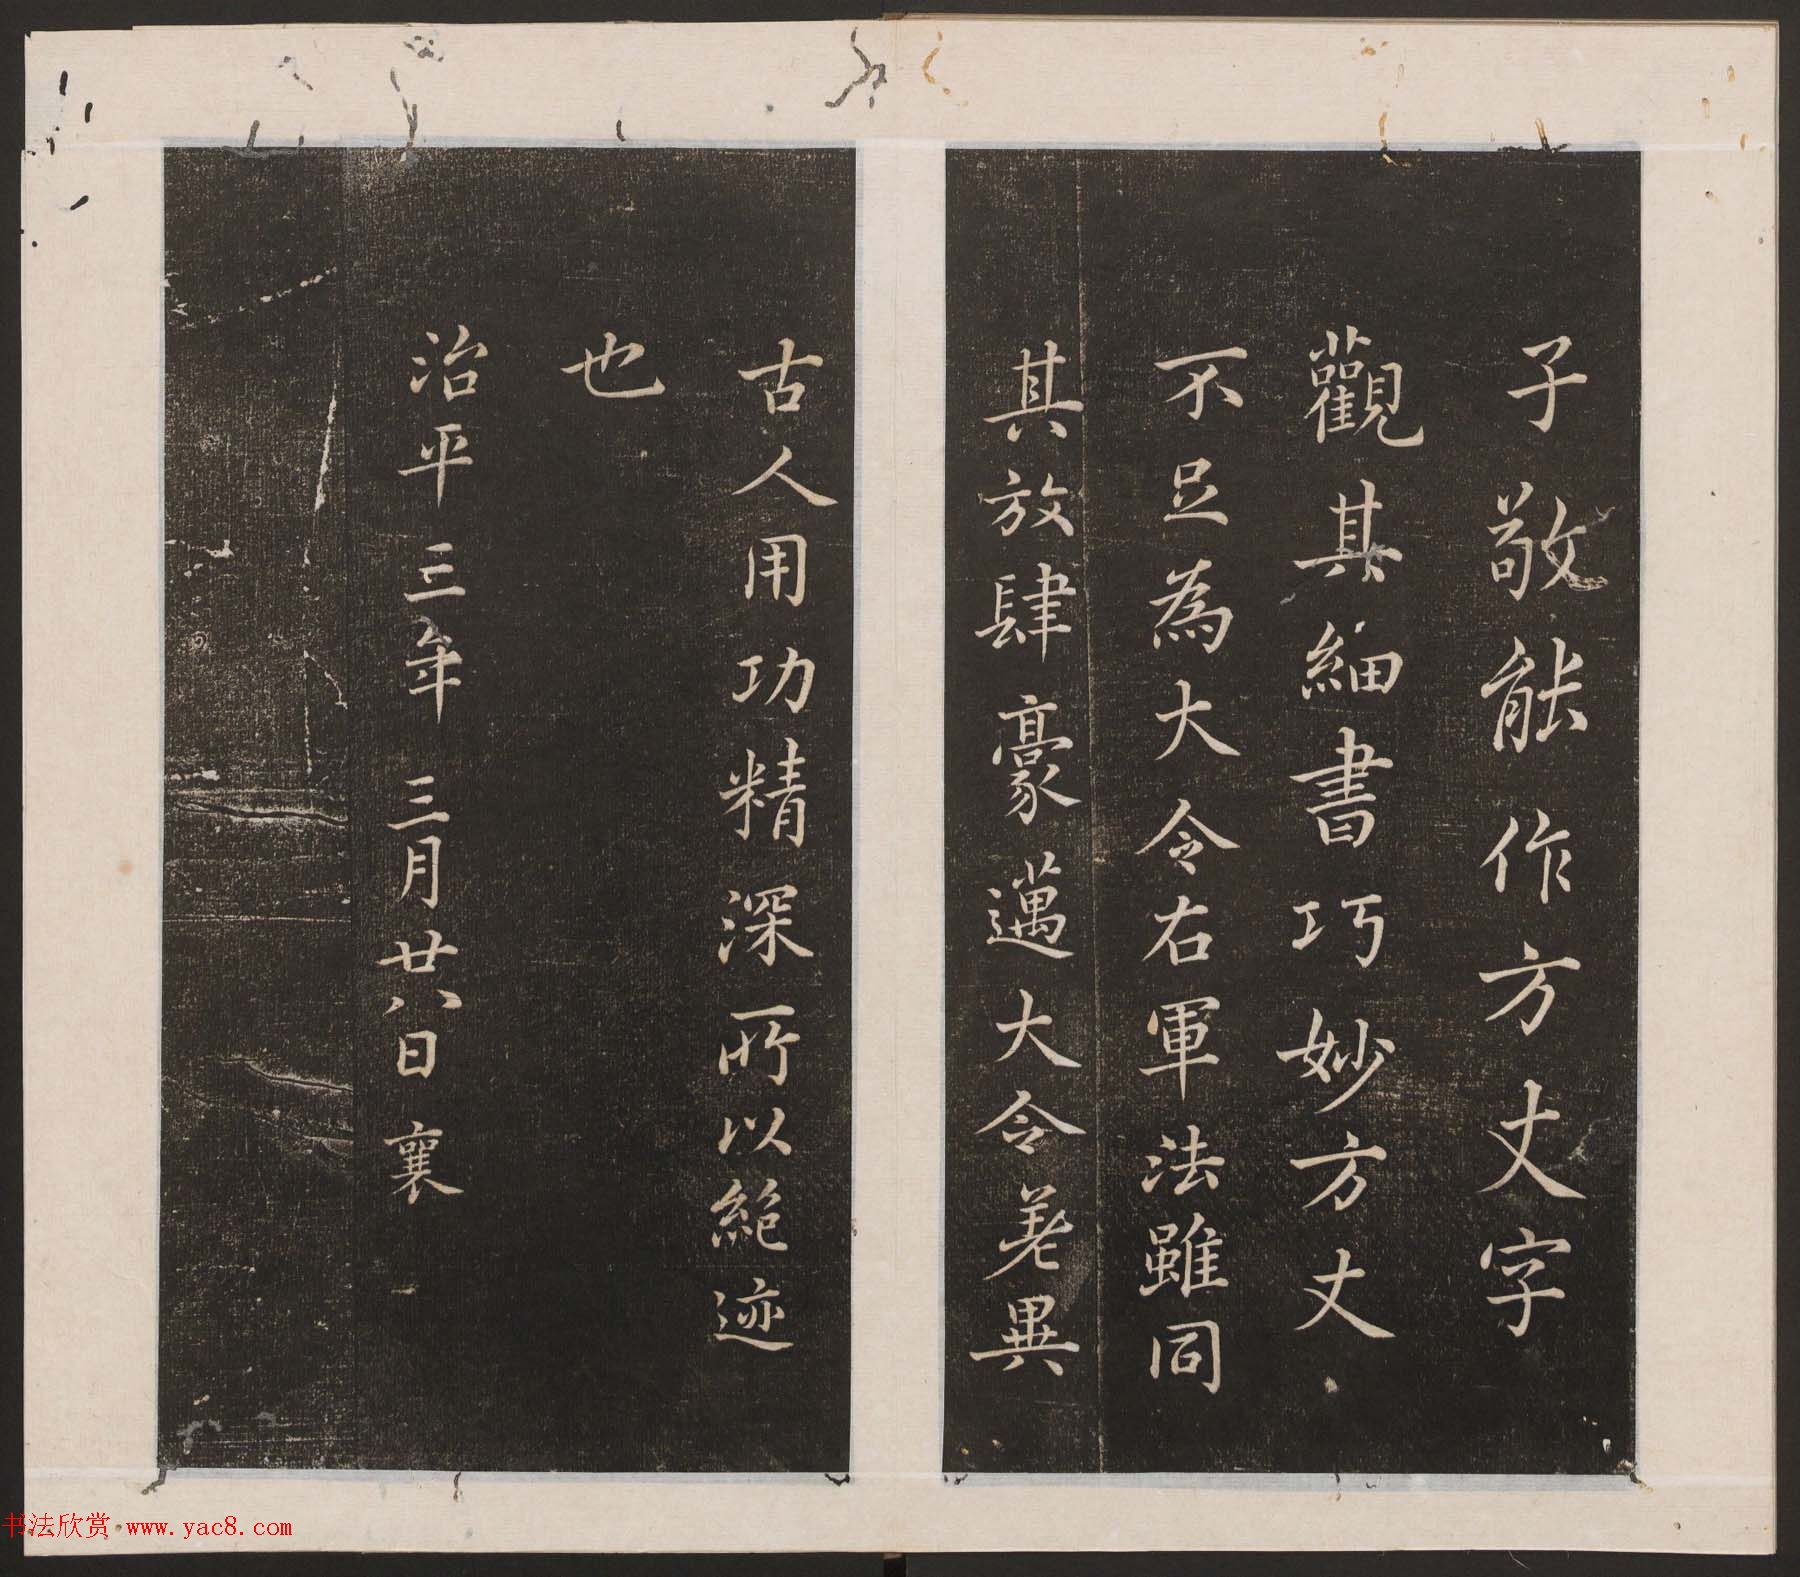 子敬能作方丈字
觀其細書巧妙方丈
不足為大令右軍法雖同
其放肆豪邁大令差異
古人用功精深所以絕迹
也
治平三年三月廿八日襄
书法欣赏 www.yac8.com